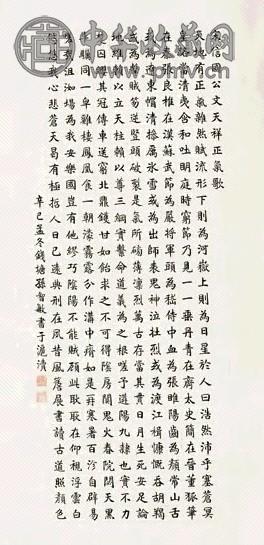 宋信國公文天祥正氣歌
天地有正氣雜然賦流形下則為河嶽上則為日星於人曰浩然沛乎塞蒼冥
皇路當清夷含和吐明庭時窮節乃見一一垂丹青在齊太史簡在晉董狐筆
在秦張良椎在漢蘇武節為嚴將軍頭為嵇侍中血為張睢陽齒為顏常山舌
或為遼東帽清操厲冰雪或為出師表鬼神泣壯烈或為渡江楫慷慨吞胡羯
或為擊賊笏逆豎頭破裂是氣所磅礴凜烈萬古存當其貫日月生死安足論
地維賴以立天柱賴以尊三綱實繫命道義為之根嗟予遘陽九隸也實不力
楚囚纓其冠傳車送窮北鼎鑊甘如飴求之不可得陰房闃鬼火春院閟天黑
牛驥同一皁雞棲鳳凰食一朝濛霧露分作溝中瘠如是再寒暑百沴自辟易
嗟哉沮洳場為我安樂國豈有他繆巧陰陽不能賊顧此耿耿在仰視浮雲白
悠悠我心悲蒼天曷有極哲人日已遠典刑在夙昔風簷展書讀古道照顏色
辛巳孟冬錢塘孫智敏書于滬濱